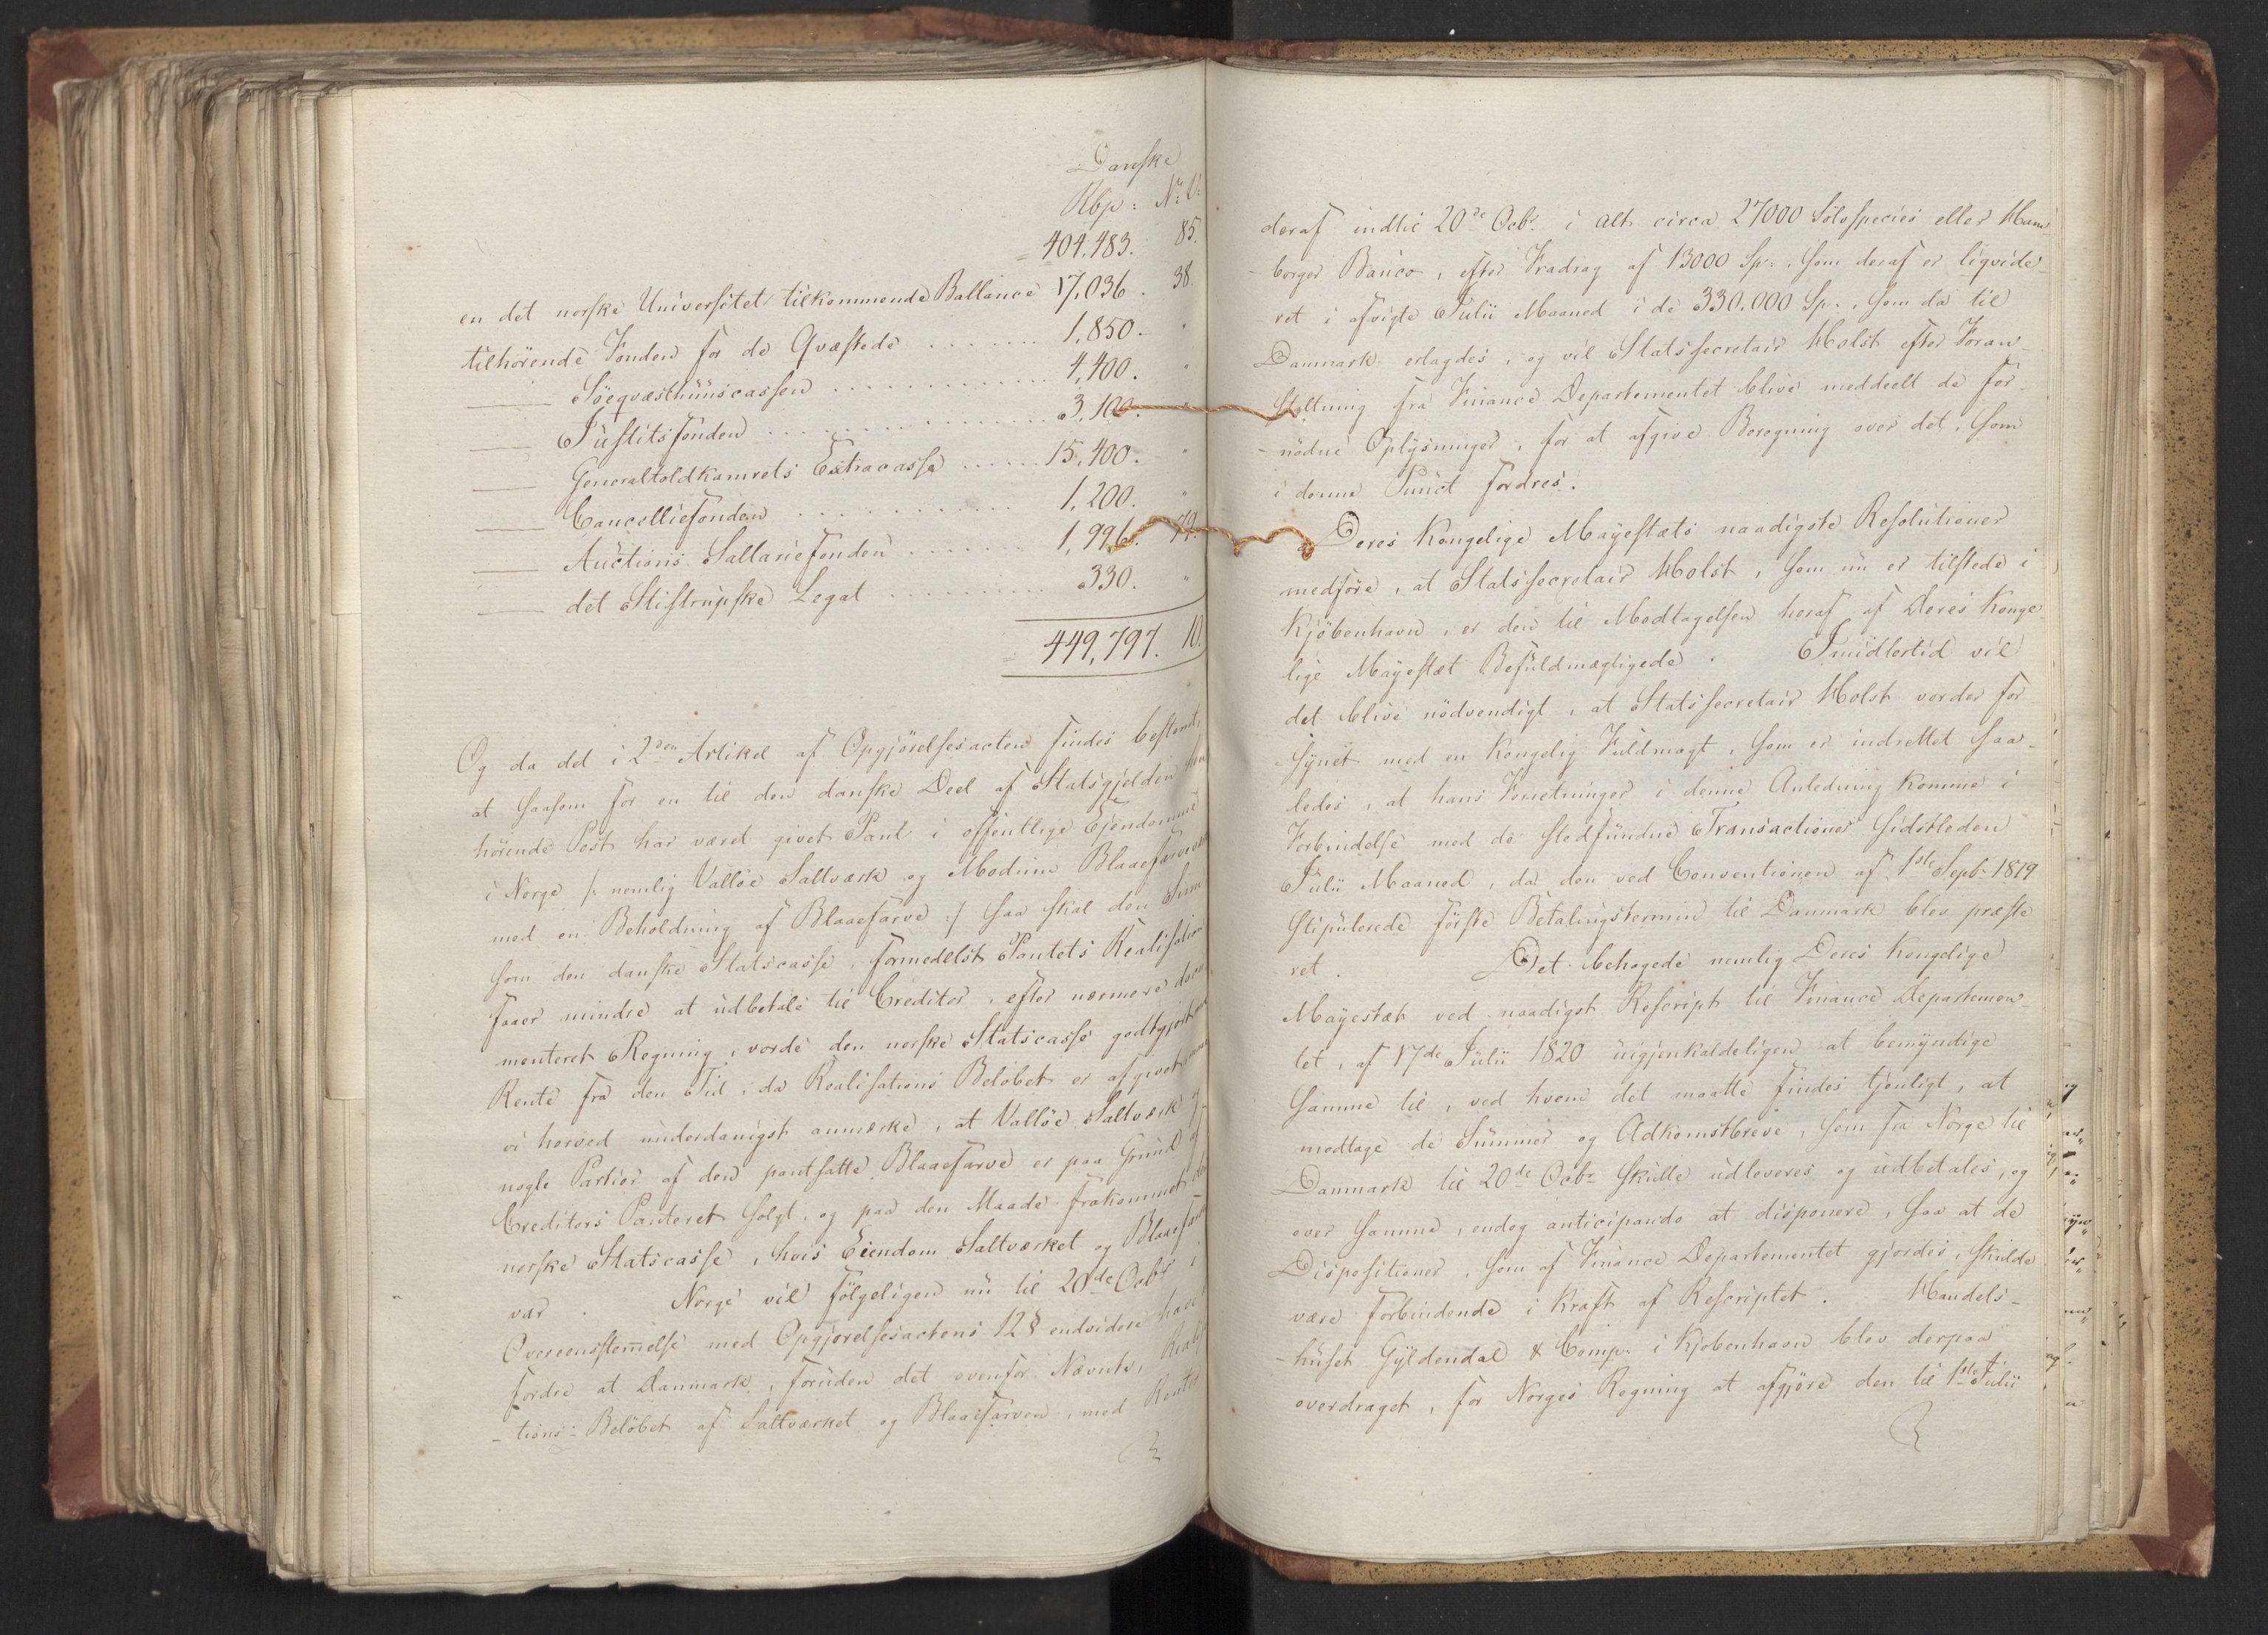 Danske
Rbp: N: V:
= 404,483. 85.
en det norske Universitet tilkommende Ballance 17,036. 38.
tilhørende Fonden for de Qvæstede ....... 1,850. "
—— Søeqvæsthuuscassen ............. 4,400. "
—— Justitsfonden ................ 3,100. "
—— Generaltoldkamrets Extracasse ..... 15,400. "
—— Cancelliefonden ............ 1,200. "
—— Auctions Sallariefonden ....... 1,996. 79.
—— det Stistrupske Legat .......... 330. "
= 449,797. 10.
Og da det i 2den Artikel af Opgjørelsesacten findes bestemt,
at saasom for en til den danske Deel af Statsgjelden hen
hørende Post har været givet Pant i offentlige Ejendomme
i Norge /: nemlig Valløe Saltværk og Modums Blaaefarveværk
med en Beholdning af Blaaefarve :/ saa skal den Sum
som den danske Statscasse, formedelst Pantets Realisation
faaer mindre at udbetale til Creditor, efter nærmere docu
menteret Regning, vorde den norske Statscasse godtgjort med
Rente fra den Tid, da Realisations Beløbet er afgivet,
vi herved underdanigst anmærke, at Valløe Saltværk og
nogle Partier af den pantsatte Blaaefarve er paa Grund af
Creditors Panteret solgt, og paa den Maade frakommet den
norske Statscasse, hvis Eiendom Saltværket og Blaaefarven
var. Norge vil følgeligen nu til 20de Octbr i
Overeensstemmelse med Opgjørelsesactens 12 § endvidere have
fordre at Danmark, foruden det ovenfor Nævnte, Realisa
-tions-Beløbet af Saltværket og Blaaefarven, med Renter
deraf indtil 20de Octbr i alt circa 27000 Sølvspecies eller Ham-
-borger Banco, efter Fradrag af 13000 Sp:, som deraf er liqvide-
-ret i afvigte Julii Maaned i de 330,000 Sp:, som da til
Danmark erlagdes, og vil Statssecretair Holst efter Foran-
staltning fra Finance Departementet blive meddeelt de for-
-nødne Oplysninger, for at afgive Beregning over det, som
i denne Punct fordres.
Deres Kongelige Mayestæts naadigste Resolutioner
medføre, at Statssecretair Holst, som nu er tilstede i
Kjøbenhavn, er den til Modtagelsen heraf af Deres Konge
lige Mayestæt Befuldmægtigede. Imidlertid vil
det blive nødvendigt, at Statssecretair Holst vorder for
synet med en Kongelig Fuldmagt, som er indrettet saa-
ledes, at hans Forretninger i denne Anledning komme i
Forbindelse med de stedfundne Transactioner sidstleden
Julii Maaned, da den ved Conventionen af 1ste Septr 1819
stipulerede første Betalingstermin til Danmark blev præste
ret. Det behagede nemlig Deres Kongelige
Mayestæt ved naadigst Rescript til Finance Departemen-
tet, af 17de Julii 1820 uigjenkaldeligen at bemyndige
samme til, ved hvem det maatte findes tjenligt, at
modtage de Summer og Adkomstbreve, som fra Norge til
Danmark til 20de Octbr skulle udleveres og udbetales, og
over samme, endog anticipando at disponere, saa at de
Dispositioner, som af Finance Departementet gjordes, skulde
være forbindende i Kraft af Rescriptet. Handels-
-huset Gyldendal & Comp. i Kjøbenhavn blev derpaa
overdraget, for Norges Regning at afgjøre den til 1ste Julii